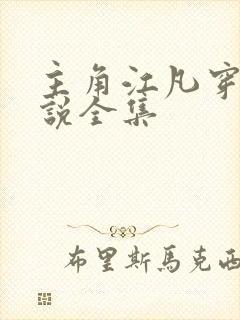 主角江凡穿
説全集
布里斯馬克西